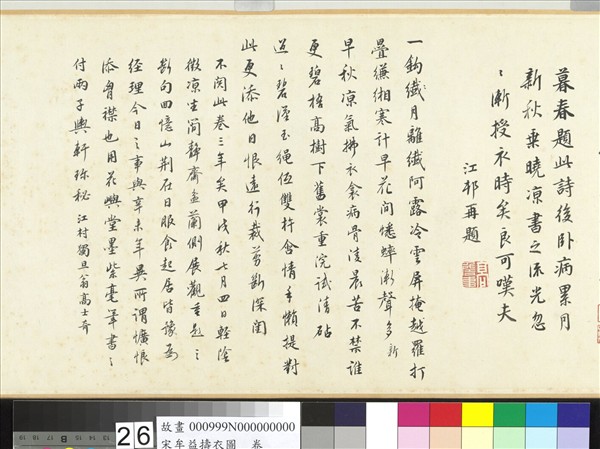 暮春題此詩後卧病累月
新秋乗曉涼書之流光忽
〻漸授衣時矣良可嘆夫
江邨再題
一鉤纖月離纖阿露冷雲屏掩越羅打
疊縑緗寒計早花間蟋蟀漸聲多 新
早秋涼氣拂衣衾病骨淩晨苦不禁誰
更碧梧高樹下舊裳重浣試清砧
迢〻碧漢玉繩低雙杵含情手懶提對
此更添他日恨遠行裁剪斷深閨
不閱此卷三年矣甲戌秋七月四日輕陰
微涼坐簡靜齋盆蘭側展觀重題三
斷句回憶山荆在日服食起居皆豫爲
經理今日之事與辛未年異所謂懭悢
添胷襟也用花嶼堂墨紫毫筆書〻
付兩子輿軒珍秘 江村獨旦翁高士奇
26
故畫 000999N000000000
宋牟益擣衣圖 卷